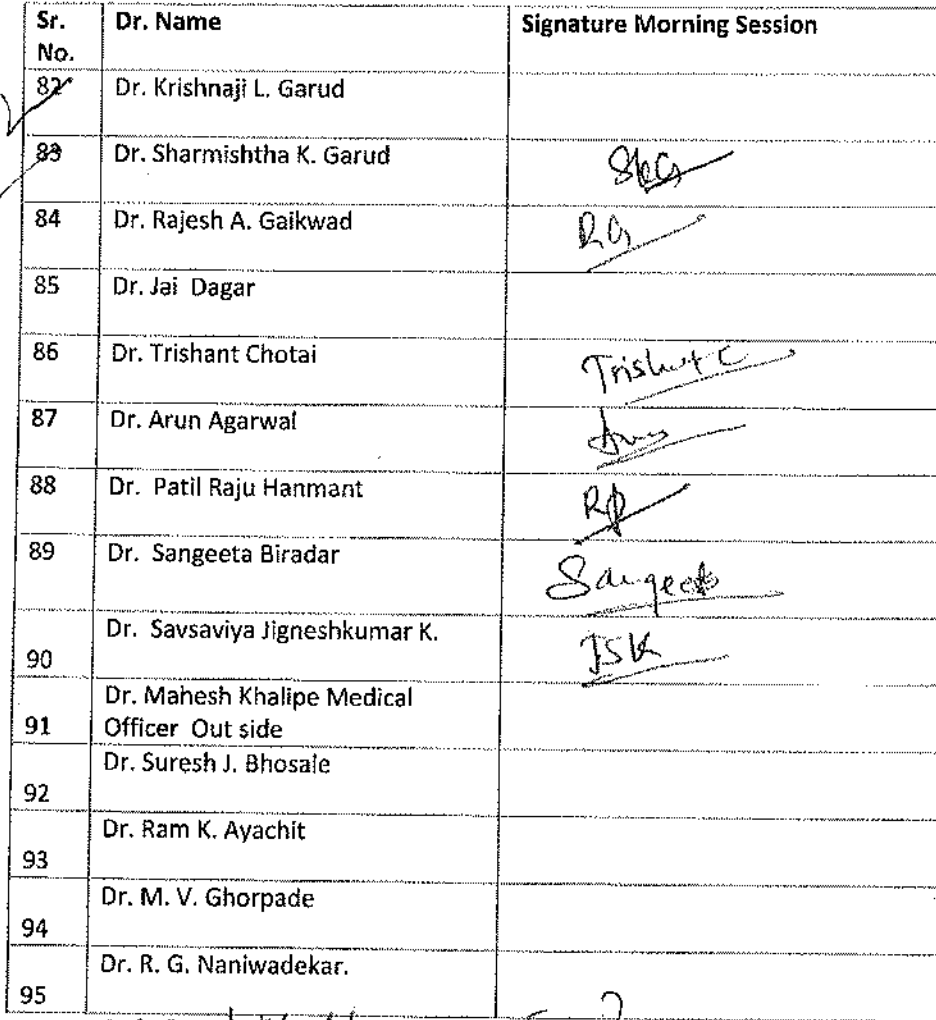 Sr. No. Dr. Name Signature Morning Session
82 Dr. Krishnaji L. Garud
83 Dr. Sharmishtha K. Garud SKG
84 Dr. Rajesh A. Gaikwad RG
85 Dr. Jai Dagar
86 Dr. Trishant Chotai
87 Dr. Arun Agarwal
88 Dr. Patil Raju Hanmant RP
89 Dr. Sangeeta Biradar Sangeeta
90 Dr. Savsaviya Jigneshkumar K. JSK
91 Dr. Mahesh Khalipe Medical
Officer Out side
92 Dr. Suresh J. Bhosale
93 Dr. Ram K. Ayachit
94 Dr. M. V. Ghorpade
95 Dr. R. G. Naniwadekar.